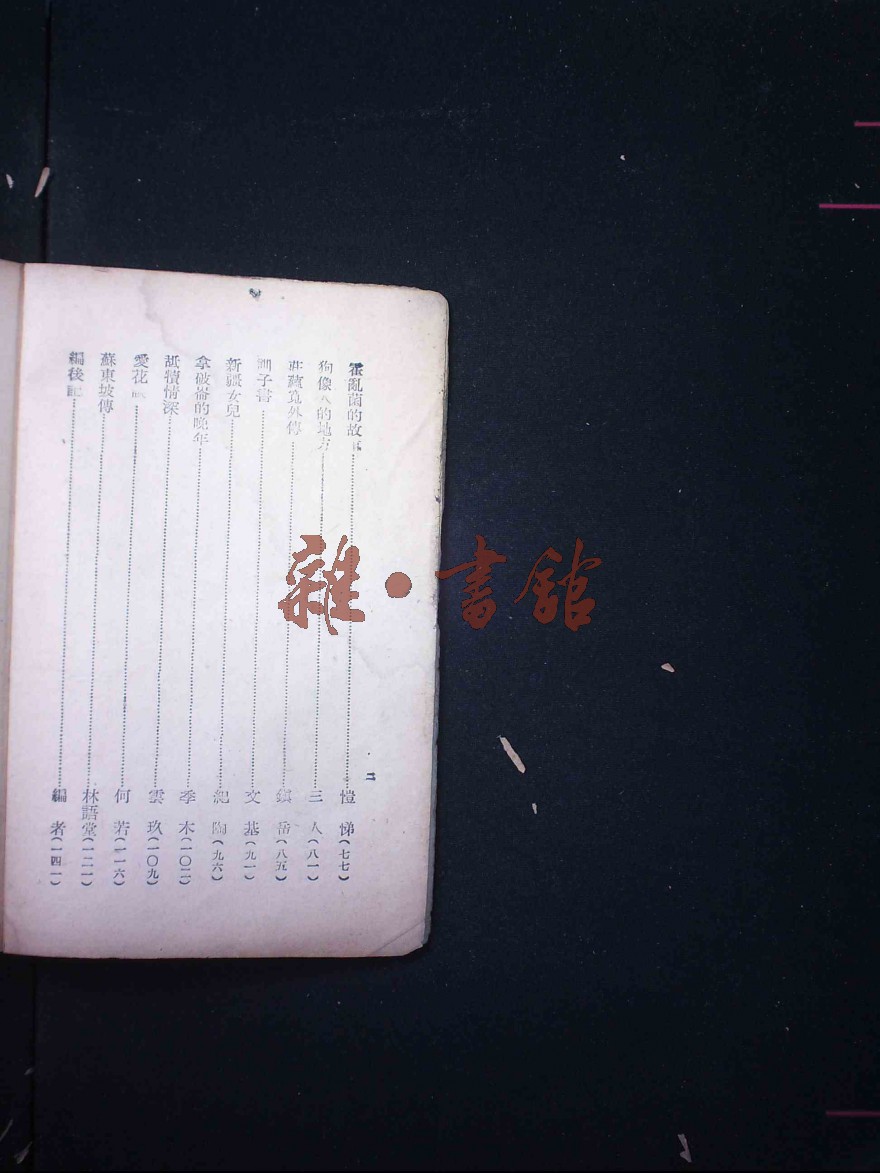 霍亂菌的故事……愷悌(七七)
狗像人的地方……三人(八一)
莊薦覓外傳……鎮岳(八五)
子書……文基(九一)
新疆女兒……紀陶(九六)
拿破崙的晚年……季木(一〇二)
舐犢情深……雲玖(一〇九)
愛花……何若(一一六)
蘇東坡傳……林語堂(一二一)
編後記……編者(一四一)
二
雜・書館